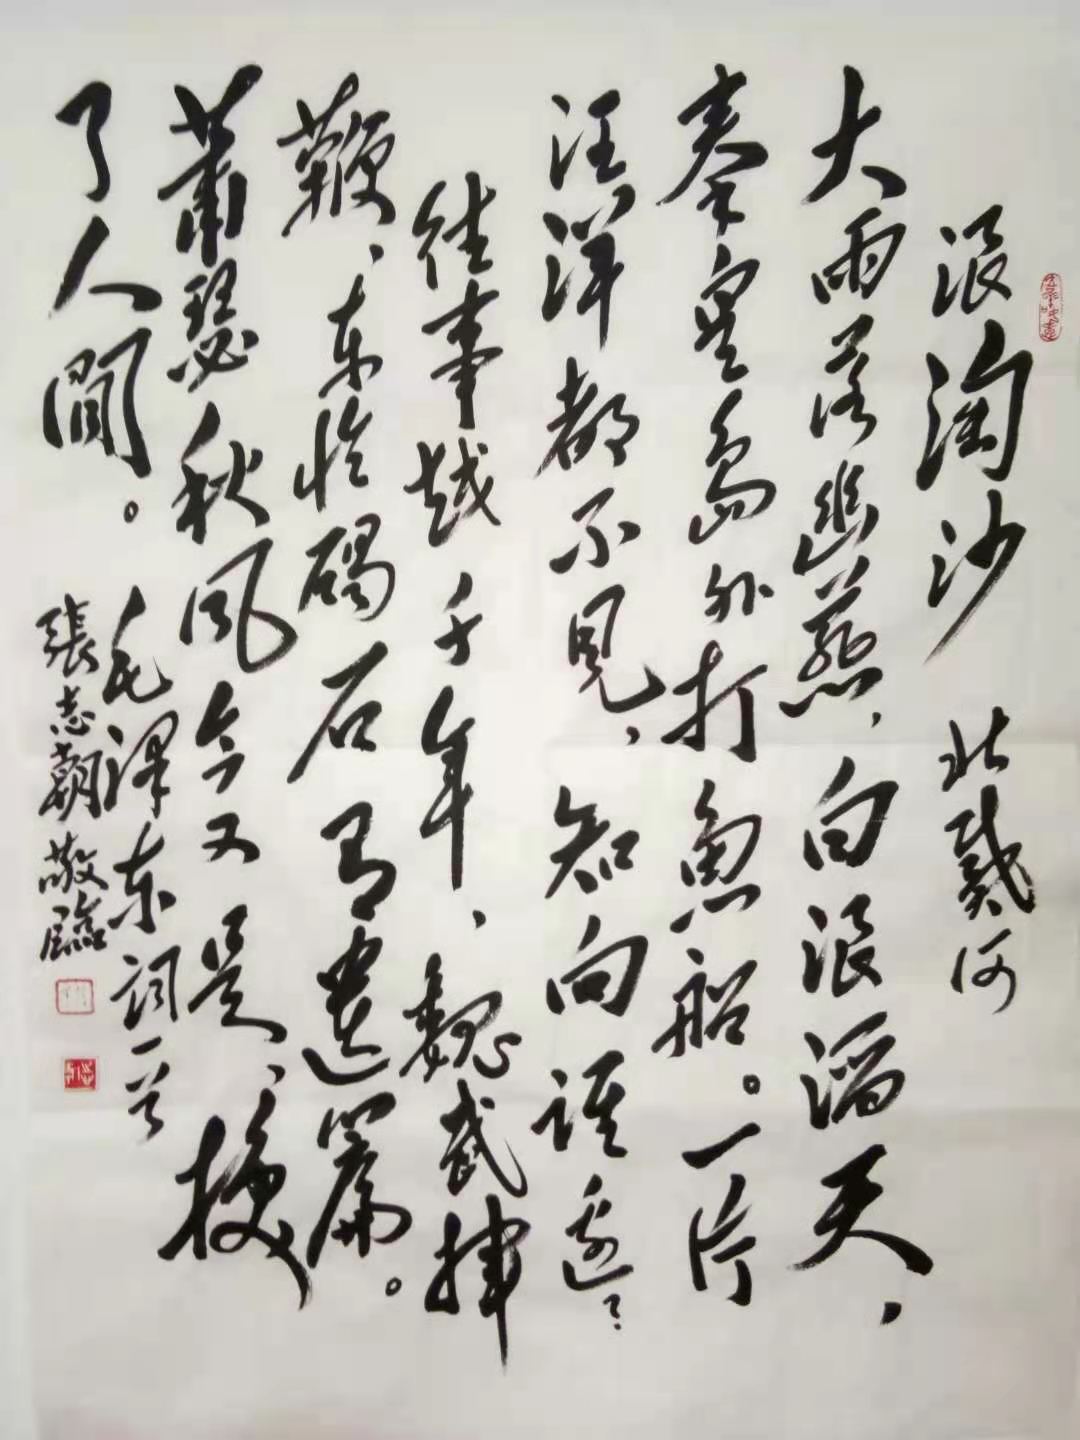 浪淘沙 北戴河
大雨落幽燕,白浪滔天,
秦皇島外打魚船。一片
汪洋都不見,知向誰边?
往事越千年、魏武揮
鞭、东临碣石有遺篇。
萧瑟秋风今又是、換
了人間。
毛澤东詞一首
張志朝敬臨